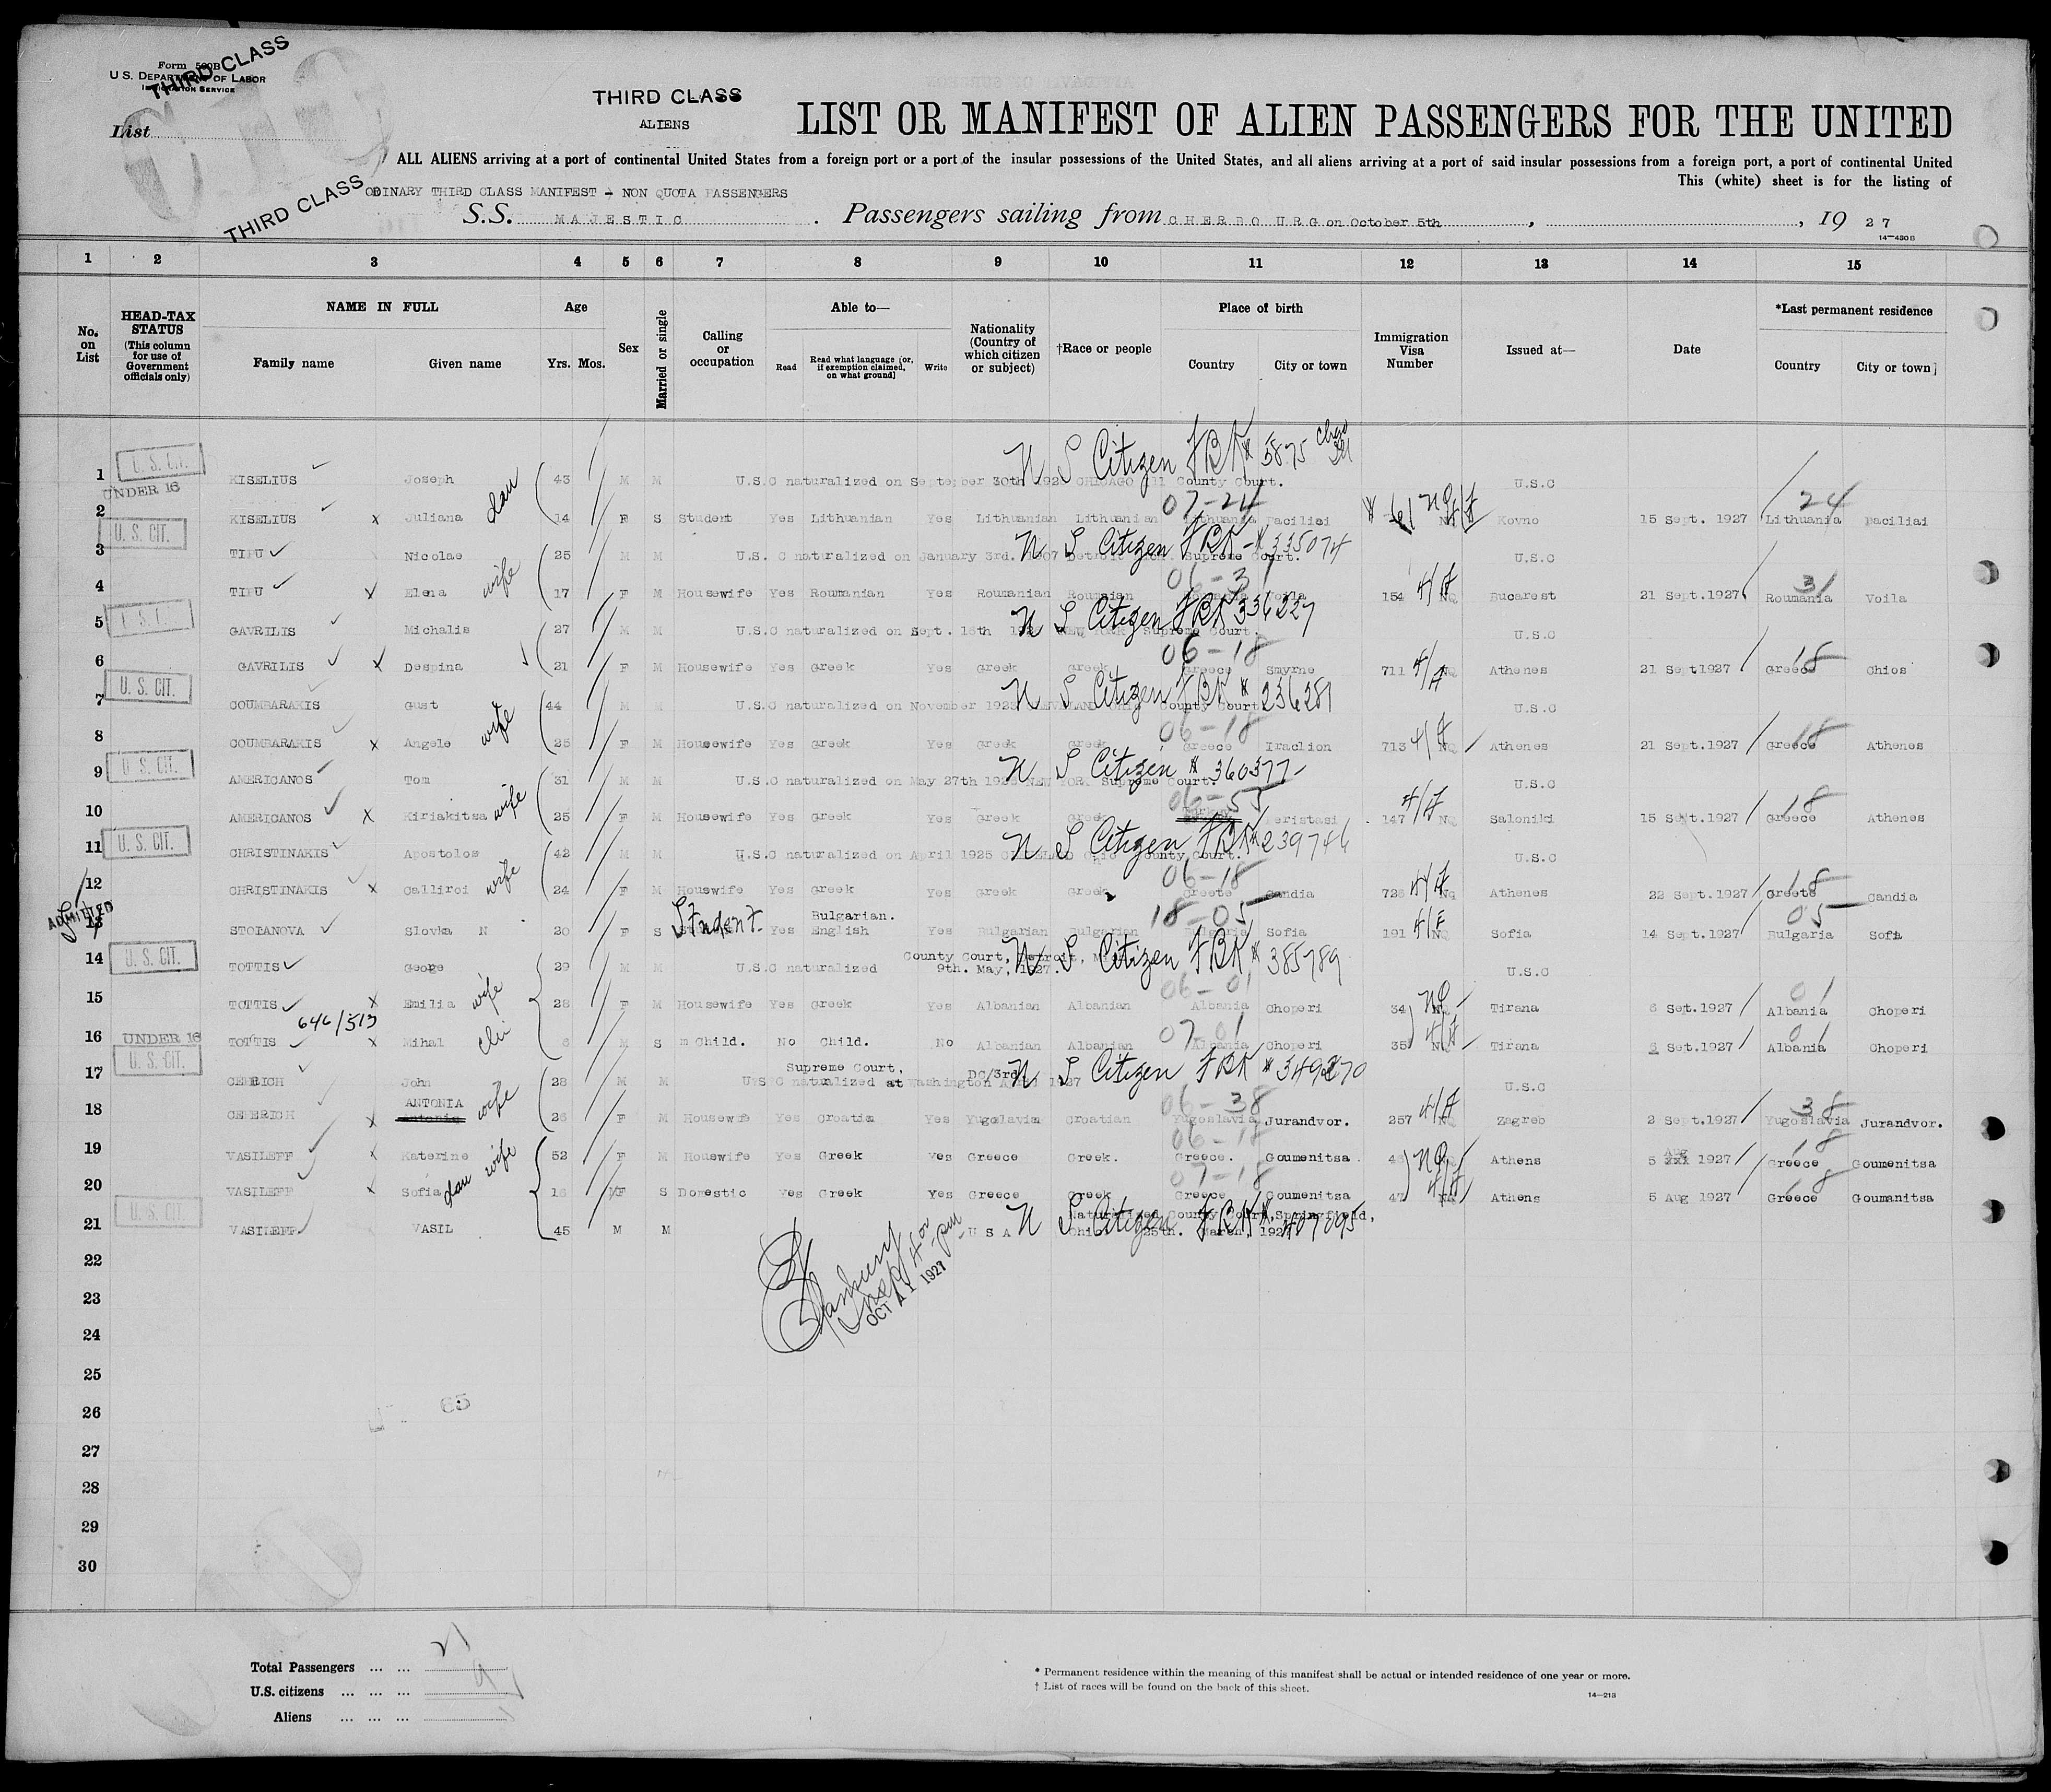 Form 500B
U.S. DEPARTMENT OF LABOR
IMMIGRATION SERVICE
THIRD CLASS
List
THIRD CLASS
ALIENS
LIST OR MANIFEST OF ALIEN PASSENGERS FOR THE UNITED
ALL ALIENS arriving at a port of continental United States from a foreign port or a port of the insular possessions of the United States, and all aliens arriving at a port of said insular possessions from a foreign port, a port of continental United
This (white) sheet is for the listing of
THIRD CLASS
ODINARY THIRD CLASS MANIFEST - NON QUOTA PASSENGERS
S.S. MAJESTIC. Passengers sailing from CHERBOURG on October 5th, , 19 27
14-430B
1 2 3 4 5 6 7 8 9 10 11 12 13 14 15
No. on List
HEAD-TAX STATUS (This column for use of Government officials only)
NAME IN FULL
Family name Given name
Age
Yrs. Mos.
Sex
Married or single
Calling or occupation
Able to—
Read Read what language [or, if exemption claimed, on what ground] Write
Nationality (Country of which citizen or subject)
†Race or people
Place of birth
Country City or town
Immigration Visa Number
Issued at—
Date
*Last permanent residence
Country City or town]
1 U.S. CIT. KISELIUS Joseph 43 M M U.S.C naturalized on September 30th CHICAGO Ill County Court. U S Citizen 5875 U.S.C
2 UNDER 16 KISELIUS x Juliana dau 14 F S Student Yes Lithuanian Yes Lithuanian Lithuanian 07-24 Lithuania Paciliai 61 NQ Kovno 15 Sept. 1927 24 Lithuania Paciliai
3 U.S. CIT. TIFU Nicolae 25 M M U.S.C naturalized on January 3rd. Detroit Supreme Court. U S Citizen 335074 U.S.C
4 TIFU x Elena wife 17 F M Housewife Yes Roumanian Yes Roumanian Roumanian 06-31 Voila 154 NQ Bucarest 21 Sept.1927 31 Roumania Voila
5 GAVRILIS Michalis 27 M M U.S.C naturalized on Sept. 16th Supreme Court. U S Citizen 336227 U.S.C
6 GAVRILIS x Despina 21 F M Housewife Yes Greek Yes Greek Greek 06-18 Greece Smyrne 711 NQ Athenes 21 Sept1927 18 Greece Chios
7 U.S. CIT. COUMBARAKIS Gust 44 M M U.S.C naturalized on November CLEVELAND County Court U S Citizen 236281 U.S.C
8 COUMBARAKIS x Angele wife 25 F M Housewife Yes Greek Yes Greek Greek 06-18 Greece Iraclion 713 NQ Athenes 21 Sept.1927 18 Greece Athenes
9 U.S. CIT. AMERICANOS Tom 31 M M U.S.C naturalized on May 27th NEW YORK Supreme Court. U S Citizen # 360377 U.S.C
10 AMERICANOS x Kiriakitsa wife 25 F M Housewife Yes Greek Yes Greek Greek 06-55 Peristasi 147 NQ Saloniki 15 Sept.1927 18 Greece Athenes
11 U.S. CIT. CHRISTINAKIS Apostolos 42 M M U.S.C naturalized on April 1925 CLEVELAND Ohio County Court. U S Citizen 239746 U.S.C
12 CHRISTINAKIS x Calliroi wife 24 F M Housewife Yes Greek Yes Greek Greek 06-18 Greece Candia 728 NQ Athenes 22 Sept.1927 18 Greece Candia
ADMITTED
13 STOIANOVA Slovka N 20 F S Student Yes Bulgarian. English Yes Bulgarian Bulgarian 18-05 Bulgaria Sofia 191 NQ Sofia 14 Sept.1927 05 Bulgaria Sofia
14 U.S. CIT. TOTTIS George 29 M M U.S.C naturalized County Court, Detroit, 9th. May, 1927. U S Citizen 385789 U.S.C
15 TOTTIS x Emilia wife 28 F M Housewife Yes Greek Yes Albanian Albanian 06-01 Albania Choperi 34 NQ Tirana 6 Sept.1927 01 Albania Choperi
646/513
16 UNDER 16 TOTTIS x Mihal 6 M S m Child. No Child. No Albanian Albanian 07-01 Albania Choperi 35 NQ Tirana 6 Set.1927 01 Albania Choperi
17 U.S. CIT. CEBRICH John 28 M M U.S.C naturalized at Supreme Court, Washington DC/3rd U S Citizen 349270 U.S.C
18 CEBERICH x ANTONIA wife 26 F M Housewife Yes Croatia Yes Yugoslavia Croatian 06-38 Yugoslavia Jurandvor. 257 NQ Zagreb 2 Sept.1927 38 Yugoslavia Jurandvor.
19 VASILEFF x Katerine wife 52 F M Housewife Yes Greek Yes Greece Greek. 06-18 Greece. Goumenitsa. NQ Athens 5 Aug 1927 18 Greece Goumenitsa
20 VASILEFF x Sofia dau 16 F S Domestic Yes Greek Yes Greece Greek 07-18 Greece Goumenitsa 47 NQ Athens 5 Aug 1927 18 Greece Goumanitsa
21 U.S. CIT. VASILEFF VASIL 45 M M U S A Naturalized County Court, Springfield, Ohio 25th. March, U S Citizen 407095
OCT 11 1927
22
23
24
25
26
27
28
29
30
Total Passengers ... ... 21
U.S. citizens ... ... ... 9
Aliens ... ... ...
* Permanent residence within the meaning of this manifest shall be actual or intended residence of one year or more.
† List of races will be found on the back of this sheet.
14—213